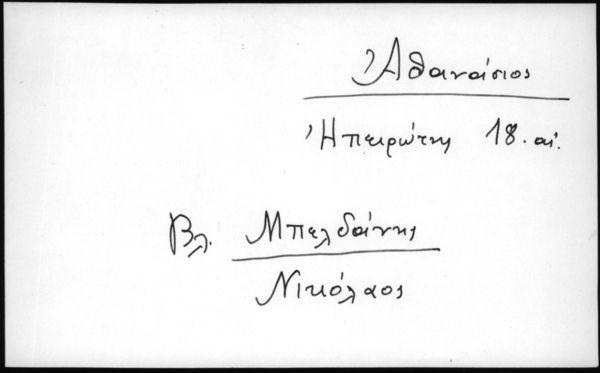 Ἀθανάσιος
Ἠπειρώτης 18. αἰ.
Βλ. Μπελδάνης
Νικόλαος